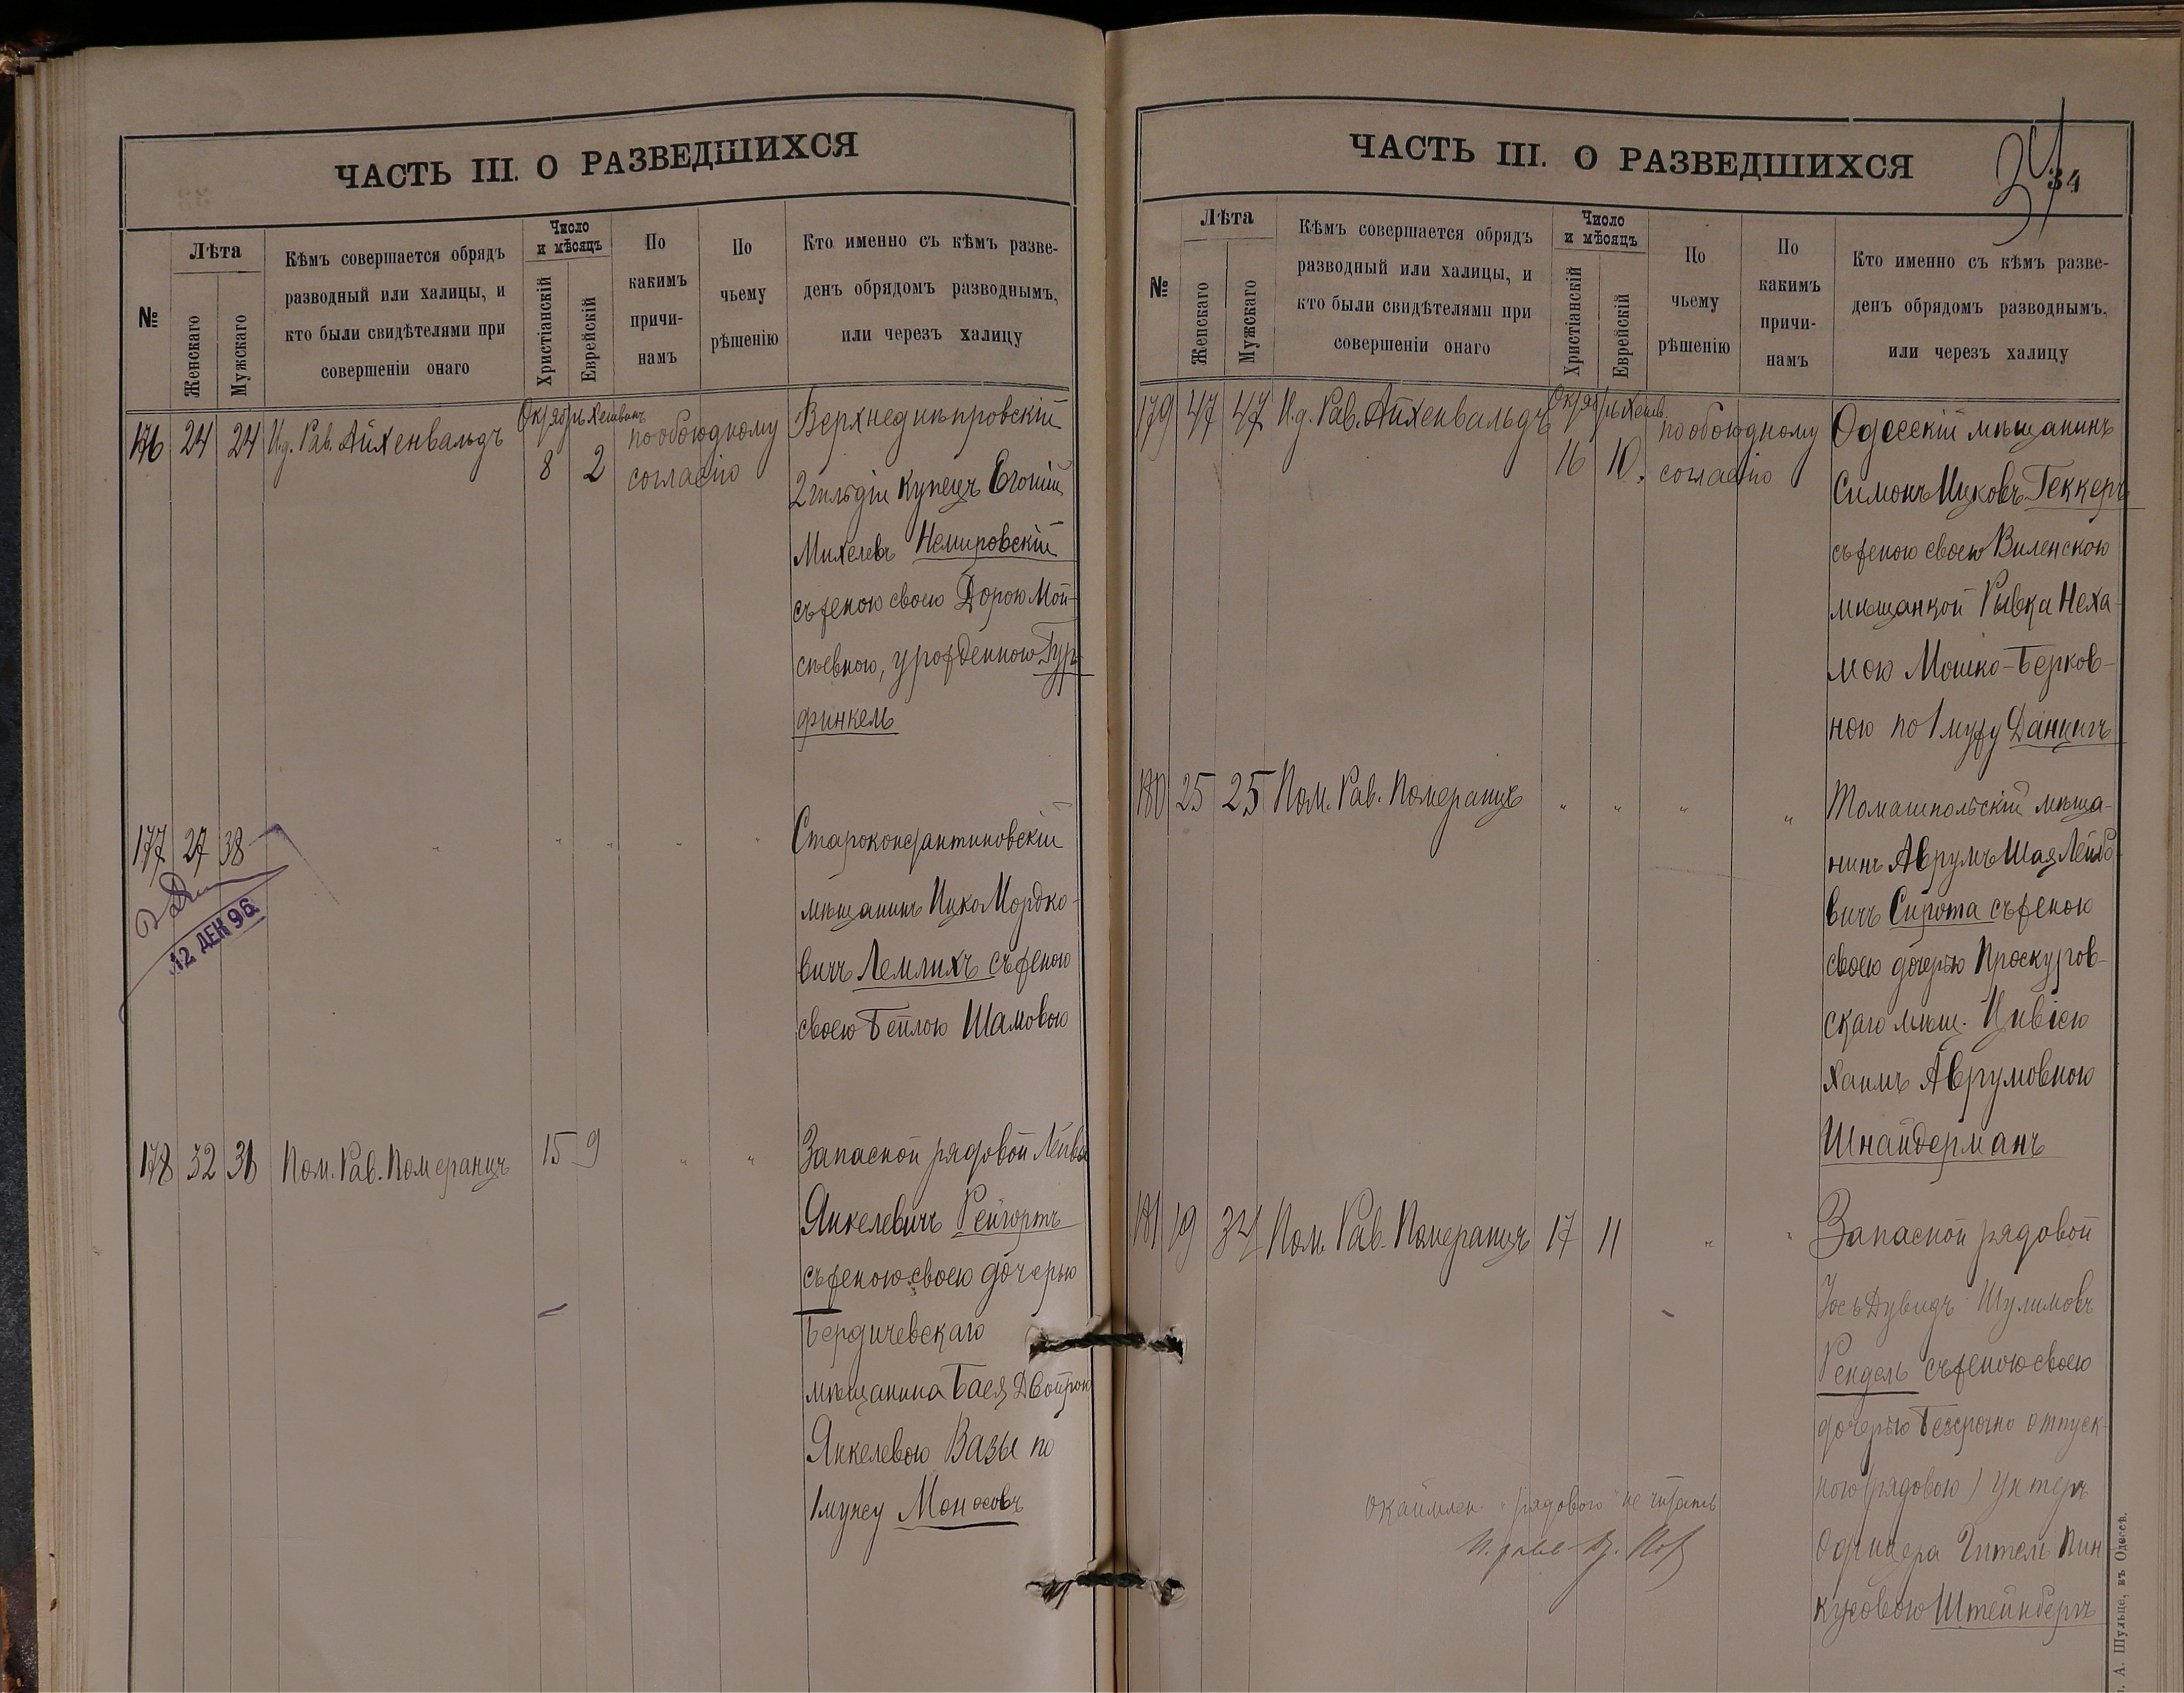 ЧАСТЬ III. О РАЗВЕДШИХСЯ
№
Лѣта
Женскаго
Мужскаго
Кѣмъ совершается обрядъ
разводный или халицы, и
кто были свидѣтелями при
совершеніи онаго
Число
и мѣсяцъ
Христіанскій
Еврейскій
По
какимъ
причи-
намъ
По
чьему
рѣшенію
Кто именно съ кѣмъ разве-
денъ обрядомъ разводнымъ,
или черезъ халицу
176 24 24 И.д. Рав. Айхенвальдъ Октябрь Хешванъ 8 2 по обоюдному
согласію
Верхнеднѣпровскій
2 гильдіи купецъ
Михелевъ Немировскій
съ женою своею Дорою Мои-
сѣевною, урожденною Гур-
финкель
177 27 38 " " " " "
Староконстантиновскій
мѣщанинъ Ицко Мордко-
вичъ Лемлихъ съ женою
своею Бейлою Шамовою
12 ДЕК 96
178 32 Пом. Рав. Померанцъ 15 9 " "
Запасной рядовой Лейба
Янкелевичъ Рейгортъ
съ женою своею дочерью
Бердичевскаго
мѣщанина Бася Двойрою
Янкелевою Вазы по
1 мужу Моносовъ
ЧАСТЬ III. О РАЗВЕДШИХСЯ
34
34
№
Лѣта
Женскаго
Мужскаго
Кѣмъ совершается обрядъ
разводный или халицы, и
кто были свидѣтелями при
совершеніи онаго
Число
и мѣсяцъ
Христіанскій
Еврейскій
По
чьему
рѣшенію
По
какимъ
причи-
намъ
Кто именно съ кѣмъ разве-
денъ обрядомъ разводнымъ,
или черезъ халицу
179 47 47 И.д. Рав. Айхенвальдъ Октябрь Хешв. 16 10. по обоюдному
согласію
Одесскій мѣщанинъ
Симонъ Ицковъ Геккеръ
съ женою своею Виленскою
мѣщанкой Рывка Неха-
мою Мошко-Берков-
ною по 1 мужу Данцигъ
180 25 25 Пом. Рав. Померанцъ " " " "
Томашпольскій мѣща-
нинъ Аврумъ Шая Лейбо-
вичъ Сирота съ женою
своею дочерью Проскуров-
скаго мѣщ. Цивіею
Хаимъ Аврумовною
Шнайдерманъ
181 19 34 Пом. Рав. Померанцъ 17 11 " "
Запасной рядовой
Іось Дувидъ Шулимовъ
Рендель съ женою своею
дочерью безсрочно отпуск-
ного (рядового) Унтеръ
Офицера Гитель Пин
кусовою Штейнбергъ
Окаймлен. "рядового" не читать
А. Шульце, въ Одессѣ.